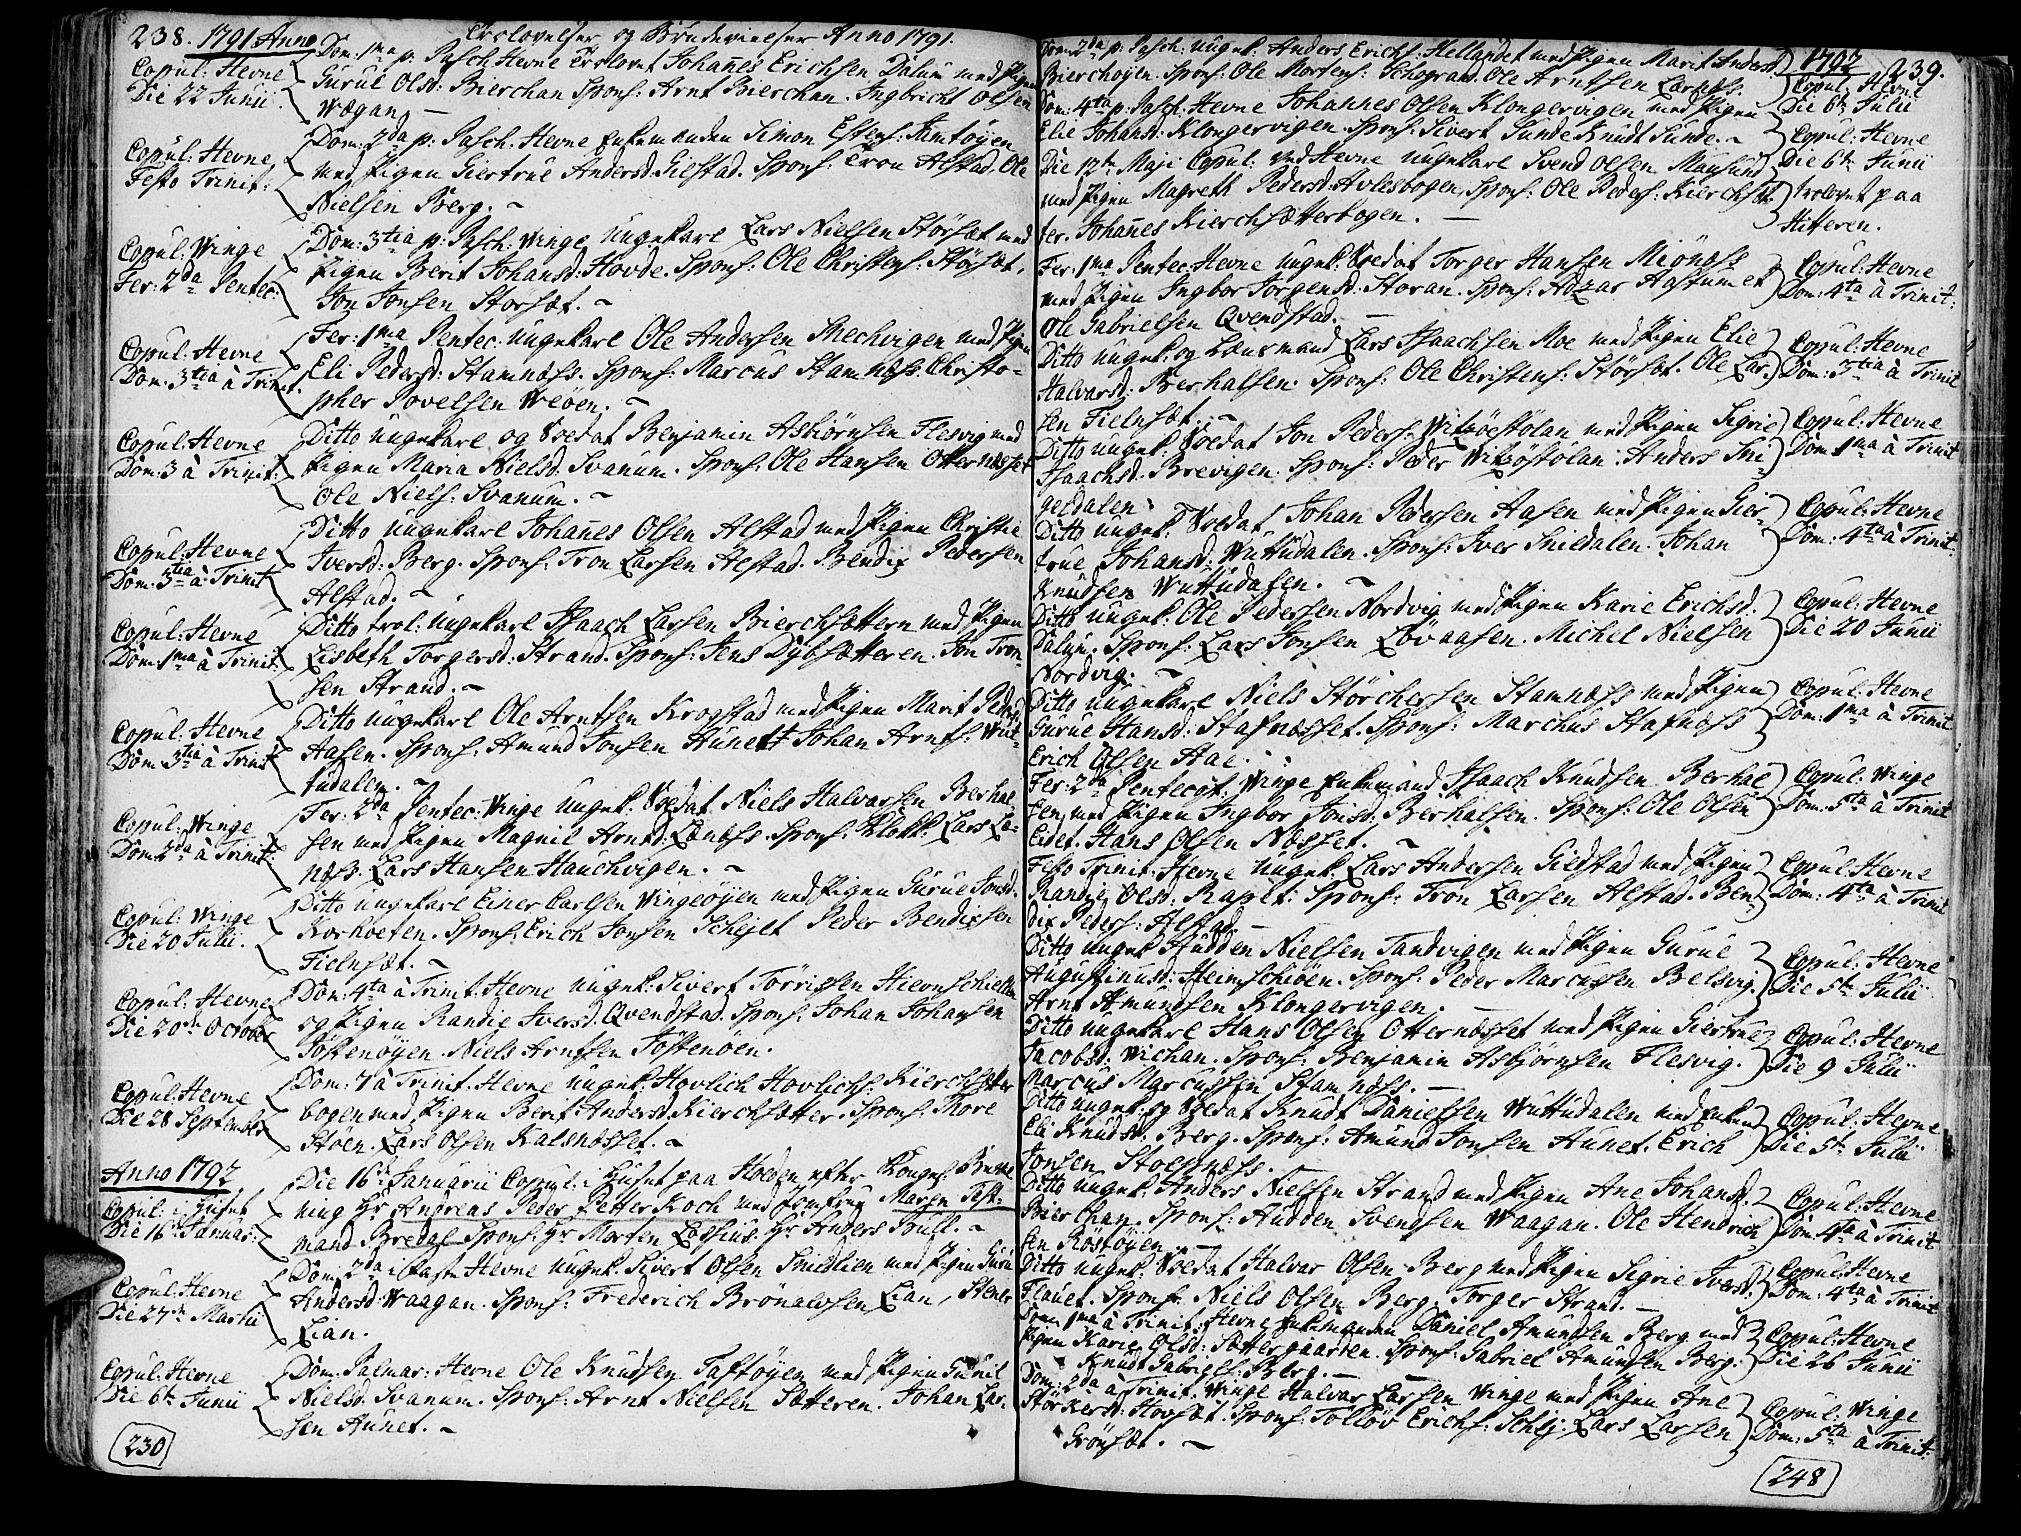 238. 1791 Anno
Trolovelser og Brudevielser Anno 1791.
Copul: Hevne
Die 22 Junii
Dom: 1ma p: Pasch Hevne Trolovet Johañes Erichsen Dalum med Pigen
Gurue Olsd: Bierchan Sponf: Arnt Bierchan. Ingbricht Olsen
Wægan. —
Copul: Hevne
Festo Trinit:
Dom: 2da p: Pasch. Hevne Enkemanden Simon Estens: Tømtøyen
med Pigen Giertrue Andersd: Gielstad. Sponf: Tron Alstad. Ole
Nielsen Berg. ~
Copul: Winge
Fer: 2da Pentec:
Dom: 3tia p: Pasch: Winge Ungekarl Lars Nielsen Störsæt med
Pigen Berit Johansd: Hovde. Sponf: Ole Christens: Störsæt.
Jon Jonsen Storsæt. ~
Copul: Hevne
Dom: 3tia à Trinit.
Fer: 1ma Pentec: Ungekarl Ole Andersen Skechvigen med Pigen
Eli Pedersd: Stamnæss. Sponf: Marcus Stamnæss. Christo-
pher Povelsen Weøen. ~
Copul: Hevne
Dom: 3 à Trinit:
Ditto Ungekarl og Soldat Benjamin Asbiörnsen Flesvig med
Pigen Maria Nielsd: Svanum. Sponf: Ole Hansen Otternæsset
Ole Niels: Svanum. ~
Copul: Hevne
Dom: 3tia à Trinit
Ditto Ungekarl Johañes Olsen Alstad med Pigen Christie
Iversd: Berg. Sponf: Tron Larsen Alstad. Bendix Pedersen
Alstad. ~
Copul: Hevne
Dom: 1ma à Trinit
Ditto trol: Ungekarl Isaach Larsen Bierchsættern med Pigen
Lisbeth Torgersd: Strand. Sponf: Jens Dybsætteren. Jon Tron-
sen Strand. ~
Copul: Hevne
Dom: 3tia à Trinit
Ditto Ungekarl Ole Arntsen Krogstad med Pigen Marit Pedersd:
Aasen. Sponf: Amund Jonsen Aunet. Johan Arnts: Wut-
tudalen. ~
Copul: Winge
Dom: 2da à Trinit:
Fer: 2da Pentec: Winge Ungek: Soldat Niels Halvarsen Berhal-
sen med Pigen Magnil Arntsd: Lænæss. Sponf: Klokk: Lars Læ-
næss. Lars Hansen Hauchvigen. ~
Copul: Winge
Die 20 Julii.
Ditto ungekarl Einer Carlsen Wingeøyen med Pigen Gurue Jonsd:
Korsvoeten. Sponf: Erich Jonsen Schejet Peder Bendixsen
Fielnsæt. ~
Copul: Hevne
Die 20de October
Dom: 4ta à Trinit. Hevne Ungek: Sivert Törrissen Hievnschiellen
og Pigen Randie Iversd. Qvendstad. Sponf: Johan Johansen
Töstenøyen. Niels Arntsen Töstenøen.
Copul: Hevne
Die 28 September
Dom: 7 à Trinit. Hevne ungek: Hovlich Hovlichs: Kierchsetter
bogen med Pigen Berit Andersd. Kierchsætter. Sponf: Thore
Stoen. Lars Olsen Kalsnæsset. ~
Anno 1792
Copul: i Huset
Die 16de Januar:
Die 16de Januarii Copul: i Huset paa Holden efter Kongel:
ning Hr Andreas Peder Petter Koch med Jomfrue Maren Test-
mand Bredal Sponf: Hr Morten Lossius. Hr Anders Poull. ~
Copul: Hevne
Die 27de Martii
Dom: 2da i Faste Hevne Ungek: Sivert Olsen Smedlien med Pigen Guru
Andersd: Waagan. Sponf: Frederich Brönaldsen Lian, Stener
Lian.
Copul: Hevne
Die 6te Junii
Dom: Palmar: Hevne Ole Knudsen Taftøyen med Pigen Gunil
Nielsd. Svanum. Sponf: Arnt Nielsen Sætteren. Johan Lar-
sen Aunet. ~
230
1792 239.
Dom: 2da p: Pasch: Ungek. Anders Erichs: Hellandet med Pigen Marit Andersd
Bierchøyen. Sponf: Ole Mortens: Schogran. Ole Arntsen Larness.
Copul: Hevne
Die 6te Julii
Dom: 4ta p: Pasch. Hevne Johannes Olsen Klongervigen med Pigen
Elie Johansd: Klongervigen Sponf: Sivert Sunde Knudt Sunde. ~
Copul: Hevne
Die 6te Junii
Die 17de Maji Copul: ved Hevne Ungekarl Svend Olsen Mausund
med Pigen Magreth Pedersd. Avlesbogen, Sponf: Ole Peders: Kierchsæt-
ter. Johañes Kierchsætterbogen. —
trolovet paa
Hitteren.
Fer: 1ma Pentec: Hevne Ungek: Soldat Torger Hansen Miönæss
med Pigen Ingbor Jorgensd. Storan. Sponf: Adzar Hastumet
Ole Gabrielsen Qvendstad. —
Copul: Hevne
Dom: 4ta à Trinit:
Ditto ungek: og Lænsmand Lars Isaachsen Moe med Pigen Elie
Halvarsd. Berhalsen. Sponf: Ole Christens: Störsæt. Ole Lar-
sen Fielnsæt. ~
Copul: Hevne
Dom: 3tia à Trinit
Ditto ungek: Soldat Jon Peders: Witzöestölan med Pigen Sigrie
Isaachsd. Brevigen. Sponf: Peder Witzöstölan. Anders Sni-
geldalen.
Copul: Hevne
Dom: 1ma à Trinit
Ditto ungek: Soldat Johan Pedersen Aasen med Pigen Gier-
true Johansd: Wuttudalen. Sponf: Iver Snildalen. Johan
Knudsen Wuttudalen. ~
Copul: Hevne
Dom: 4ta à Trinit:
Ditto ungek: Ole Pedersen Nordvig med Pigen Karie Erichsd.
Dalum. Sponf: Lars Jonsen Lövaasen. Michel Nielsen
Nordvig. ~
Copul: Hevne
Die 20 Junii
Ditto ungekarl Niels Störchersen Stamnæss med Pigen
Gurue Hansd: Stafnæsset. Sponf: Marchus Stafnæss
Erich Olsen Aae.
Copul: Hevne
Dom: 1ma à Trinit
Fer: 2da Pentecost: Winge Enkemand Isaach Knudsen Berhal-
sen med Pigen Ingbor Jonsd: Berhalsen. Sponf: Ole Olsen
Eidet. Hans Olsen Næsset. ~
Copul: Winge
Dom: 5ta à Trinit
Festo Trinit: Hevne Ungek: Lars Andersen Gielstad med Pigen
Randie Olsd: Rapet. Sponf: Tron Larsen Alstad. Ben-
dix Peders: Alstad. —
Copul: Hevne
Dom: 4ta à Trinit
Ditto ungek: Audden Nielsen Tandvigen med Pigen Gurue
Augustinusd: Heimschiöen. Sponf: Peder Marcussen Belsvig.
Arnt Amundsen Klongervigen. —
Copul: Hevne
Die 5te Julii
Ditto ungekarl Hans Olsen Otternæsset med Pigen Giertrue
Jacobsd: Wichan. Sponf: Benjamin Asbjörnsen Flesvig.
Marcus Marcussen Stamnæss. —
Copul: Hevne
Die 9 Julii
Ditto ungek: og Soldat Knudt Danielsen Wuttudalen med Enken
Eli Knudsd: Berg. Sponf: Amund Jonsen Aunet. Erich
Jonsen Stolsnæss. —
Copul: Hevne
Die 5te Julii
Ditto ungek: Anders Nielsen Strand med Pigen Ane Johansd.
Bierchan. Sponf: Audden Svendsen Waagan. Ole Hendrich-
sen Rostøyen. —
Copul: Hevne
Dom: 4ta à Trinit
Ditto ungek: Soldat Halvar Olsen Berg med Pigen Sigrie Iversd:
Flauet. Sponf: Niels Olsen Berg. Torger Strand. —
Copul: Hevne
Dom: 4ta à Trinit
Dom: 1ma à Trinit: Hevne Enkemanden Daniel Amundsen Berg med
Pigen Karie Olsd: Sættergaarden. Sponf: Gabriel Amundsen Berg.
Knudt Gabriels: Berg. —
Copul: Hevne
Die 26 Junii
Dom: 2da à Trinit. Winge Halvar Larsen Winge med Pigen Ane
Störkersd: Hovsæt. Sponf: Tollöv Erichs: Schej. Lars Larsen
Grönsæt. ~
Copul: Winge
Dom: 5ta à Trinit:
248